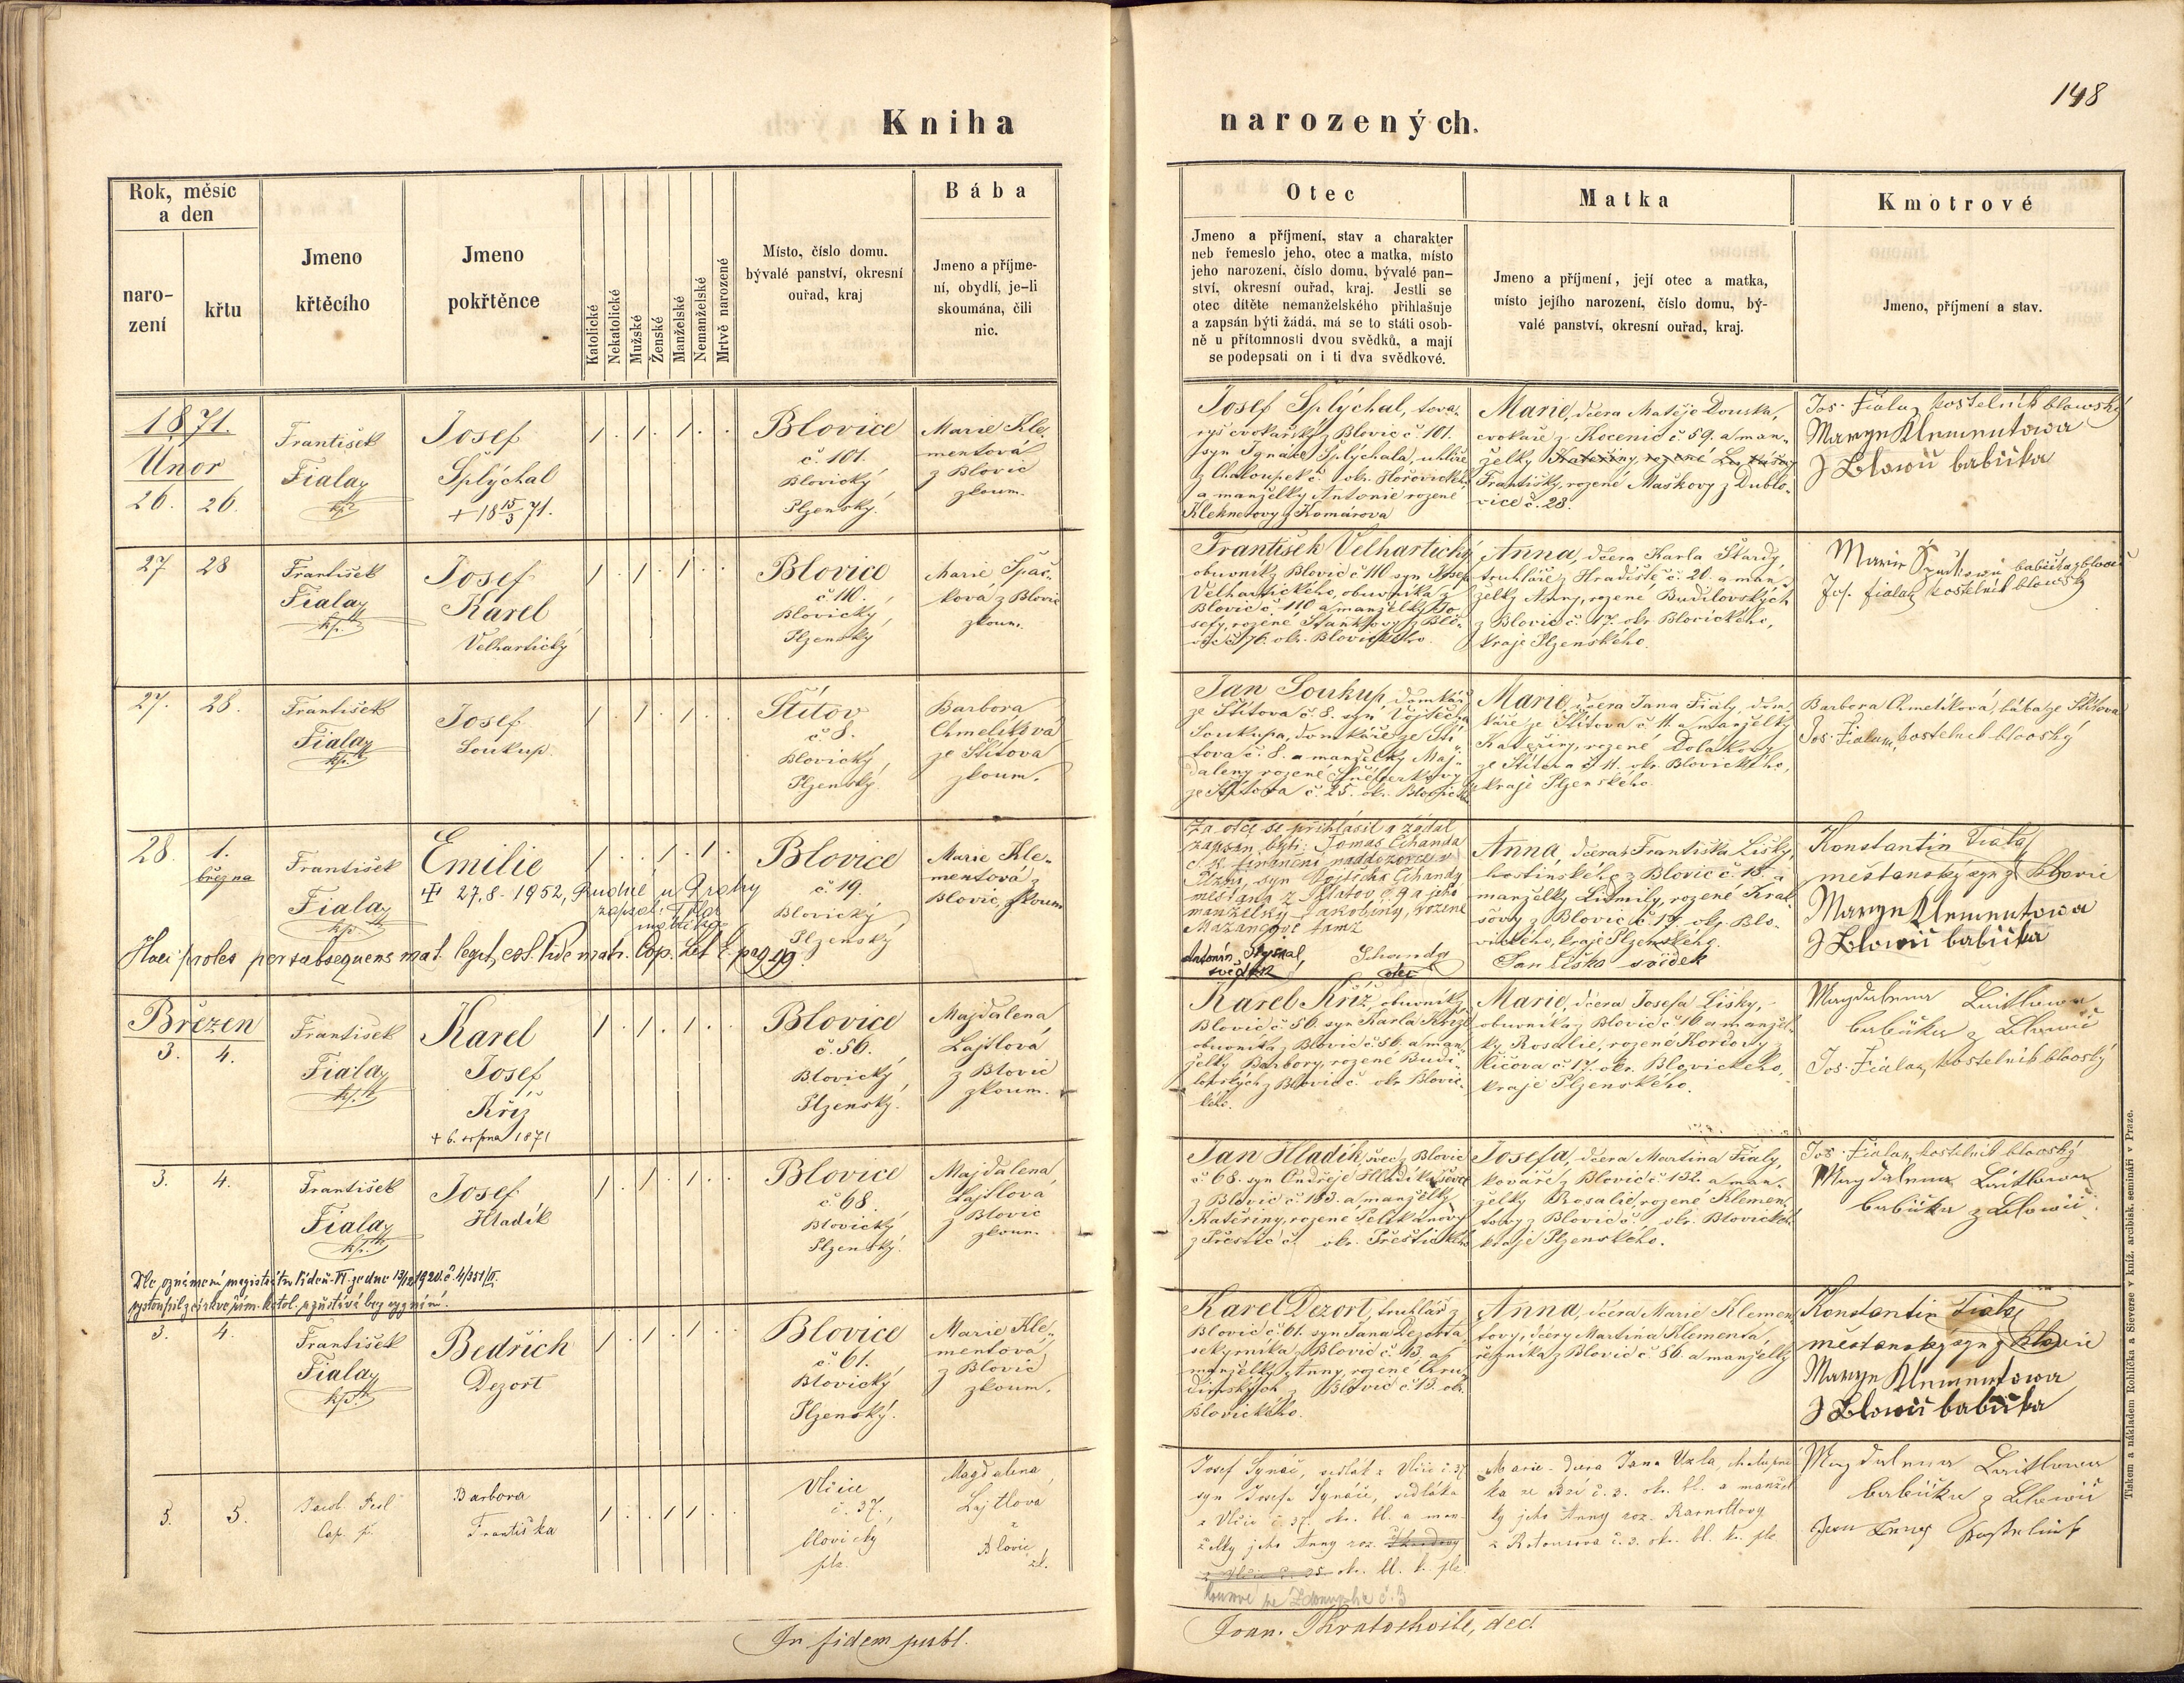 148
Kniha narozených.
Rok, měsíc
a den
naro-
zení
křtu
Jmeno
křtěcího
Jmeno
pokřtěnce
Katolické
Nekatolické
Mužské
Ženské
Manželské
Nemanželské
Mrtvě narozené
Místo, číslo domu.
bývalé panství, okresní
ouřad, kraj
Bába
Jmeno a příjme-
ní, obydlí, je-li
skoumána, čili
nic.
Otec
Jmeno a příjmení, stav a charakter
neb řemeslo jeho, otec a matka, místo
jeho narození, číslo domu, bývalé pan-
ství, okresní ouřad, kraj. Jestli se
otec dítěte nemanželského přihlašuje
a zapsán býti žádá, má se to státi osob-
ně u přítomnosti dvou svědků, a mají
se podepsati on i ti dva svědkové.
Matka
Jmeno a příjmení, její otec a matka,
místo jejího narození, číslo domu, bý-
valé panství, okresní ouřad, kraj.
Kmotrové
Jmeno, příjmení a stav.
1871.
Únor
26. 26.
František
Fiala
Josef
Šplýchal
+ 18 15/3 71.
Blovice
č. 101.
Blovický
Plzenský.
Marie Kle-
mentová
z Blovic
zkoum.
Josef Šplýchal, tova-
ryš cvokařský z Blovic č. 101.
syn Ignáce Šplýchala, uhlíře
z Chaloupek č. okr. Hořovického
a manželky Antonie rozené
Kleknerovy z Komárova
Marie, dcera Matěje Douska,
cvokaře z Kocenic č 59. a man-
želky Kateřiny, rozené
Františky, rozené Maškovy z Dublo-
vice č. 28.
Jos. Fiala kostelník blowský
Marye Klementowa
z Blowic babička
27 28
František
Fiala
Josef
Karel
Velhartický
Blovice
č 110.
Blovický,
Plzenský
Marie Špač-
ková z Blovic
zkoum.
František Velhartický
obuvník z Blovic č 110 syn Josefa
Velhartického, obuvníka z
Blovic č. 110 a manželky Jo-
sefy, rozené z Blo-
vic č 76. okr. Blovického.
Anna, dcera Karla Škardy,
truhláře z Hradiště č. 20. a man-
želky Anny, rozené Budilovských
z Blovic č. 47. okr. Blovického,
kraje Plzenského.
Marie babička z blovic
Jos. fiala kostelník blowský
27. 28.
František
Fiala
Josef
Soukup.
Štítov
č 8.
Blovický,
Plzenský.
Barbora
Chmelíková
ze Štítova
zkoum.
Jan Soukup, domkář
ze Štítova č. 8. syn Vojtěcha
Soukupa, domkáře ze Ští-
tova č. 8. a manželky Maj-
daleny rozené
ze Štítova č. 25. okr. Blovického
Marie, dcera Jana Fialy, dom-
káře ze Štítova č 11 a manželky
Kateřiny, rozené Dolákovy
ze Štítova č 11. okr. Blovického,
kraje Plzenského.
Barbora Chmelíková, bába ze Štítova
Jos. Fiala, kostelník blovský
28. 1.
března
František
Fiala
Emilie
27.8. 1952, Rudné u Prahy
zapsal:
matrikář
Blovice
č. 19.
Blovický
Plzenský
Marie Kle-
mentová z
Blovic, zkoum
Haec proles per subsequens mat. legit. est. Vide matr. Cop. Lit E. pag 99.
Za otce se přihlásil a žádal
zapsán býti: Tomáš Čihanda
c. k. finanční naddozorce v
Plzni, syn Vojtěcha Čihandy
měšťana z č. 4 a jeho
manželky Jakobiny, rozené
tamž
Antonín
svědek
otec
Anna, dcera Františka Lišky,
hostinského z Blovic č. 15. a
manželky Lidmily, rozené Kral-
sovy z Blovic č. 17. okr. Blo-
vického, kraje Plzenského.
Jan Liška svědek
Konstantin Fiala
měštanský syn z Blovic
Marye Klementowa
z Blowic babička
Březen
3. 4.
František
Fiala
Karel
Josef
Kříž
+ 6. srpna 1871
Blovice
č. 56.
Blovický
Plzenský.
Majdalena
Lajtlová
z Blovic
zkoum.
Karel Kříž, obuvník z
Blovic č. 56. syn Karla Kříže
obuvníka z Blovic č. 56. a man-
želky Barbory, rozené Budi-
lovských z Blovic č. okr. Blovic-
kého.
Marie, dcera Josefa Lišky,
obuvníka z Blovic č 16 a manžel-
ky Rosalie, rozené Kordovy z
č. 17. okr. Blovického,
kraje Plzenského.
Magdalena Laitlowa
babička z Blowic
Jos. Fiala, kostelník blovský
3. 4.
František
Fiala
Josef
Hladík
Blovice
č 68.
Blovický
Plzenský.
Majdalena
Lajtlová
z Blovic
zkoum.
Jan Hladík, švec z Blovic
č 68. syn Ondřeje Hladíka, ševce
z Blovic č. 183. a manželky
Kateřiny, rozené Pelikánovy
z Přeštic č. okr. Přeštického
Josefa, dcera Martina Fialy,
kováře z Blovic č 132. a man-
želky Rosalie, rozené Klemen-
tovy z Blovic č. okr. Blovického
kraje Plzenského.
Jos. Fiala, kostelník blovský
Magdalena Laitlowa
babička z Blowic
Dle oznámení magistrátu Vídeň VI ze dne 13/12 1920. č. 4/351/II.
vystoupil z církve řím. katol. a zůstává bez vyznání.
3. 4.
František
Fiala
Bedřich
Dezort
Blovice
č. 61.
Blovický
Plzenský.
Marie Kle-
mentová
z Blovic
zkoum.
Karel Dezort, truhlář z
Blovic č 61. syn Jana Dezorta
sekyrníka z Blovic č. 43. a
manželky Anny, rozené Chru-
dimských z Blovic č 13. okr.
Blovického.
Anna, dcera Marie Klemen-
tovy, dcery Martina Klementa,
řezníka z Blovic č 56. a manželky
Konstantin Fiala
měštanský syn z Blovic
Marye Klementowa
z Blowic babička
5. 5.
Cap. p.
Barbora
Františka
Vlčice
č. 37.
blovický
plz.
Magdalena
Lajtlova
Blovic
zk.
Josef Synáč, sedlák z Vlčic č. 37
syn Josefa Synáče, sedláka
z Vlčic č. 37. okr. bl. a man-
želky jeho Anny roz.
z Vlčic č. 25 okr. bl. k. plz.
č. 3
Marie dcera Jana Uzla, chalupní-
ka ze Bzí č. 3. okr. bl. a manžel-
ky jeho Anny roz.
č. 3. okr. bl. k. plz
Magdalena Laitlowa
babička z Blowic
In fidem publ.
Joan. Kratochvile, dec.
Tiskem a nákladem Rohlíčka a Sieverse v kníž. arcibisk. semináři v Praze.